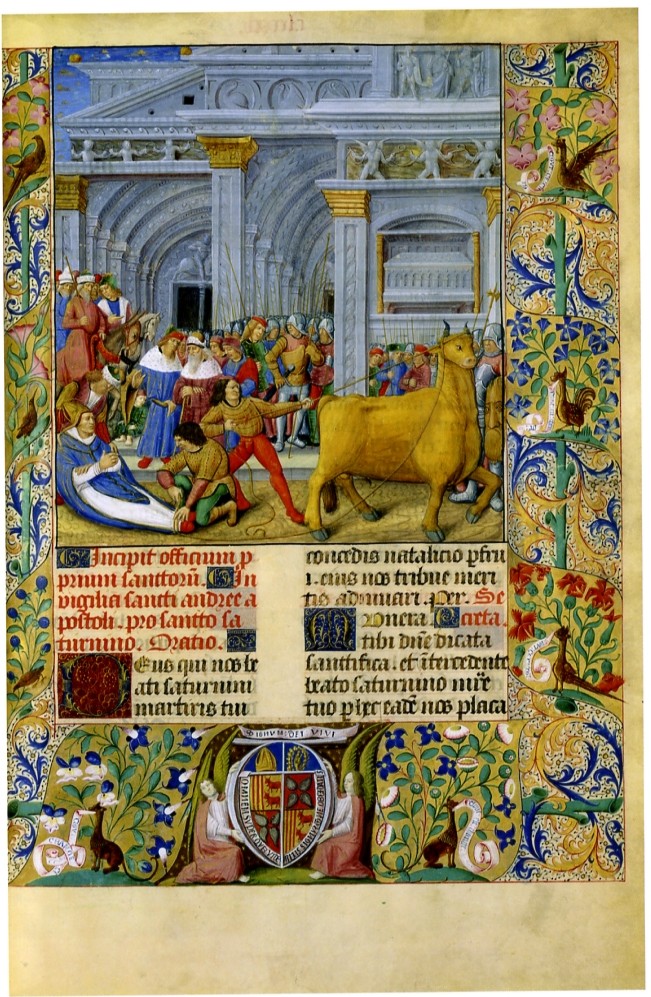 Incipit officium p
prium sanctorū. In
vigilia sancti andree a
postoli. pro sancto sa
turnino. Oratio.
Deus qui nos be
ati saturnini
martiris tui
concedis natalicio pfrui
. eius nos tribue meri
tis adiuvari. Per. Se
Munera. creta.
tibi dnē dicata
sanctifica. et itercedente
beato saturnino mr̄e
tuo p hec eadē nos placa
SIGNVM DEI VIVI